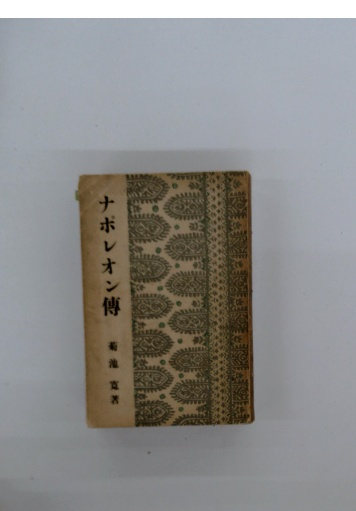 ナポレオン傳
菊池寛著